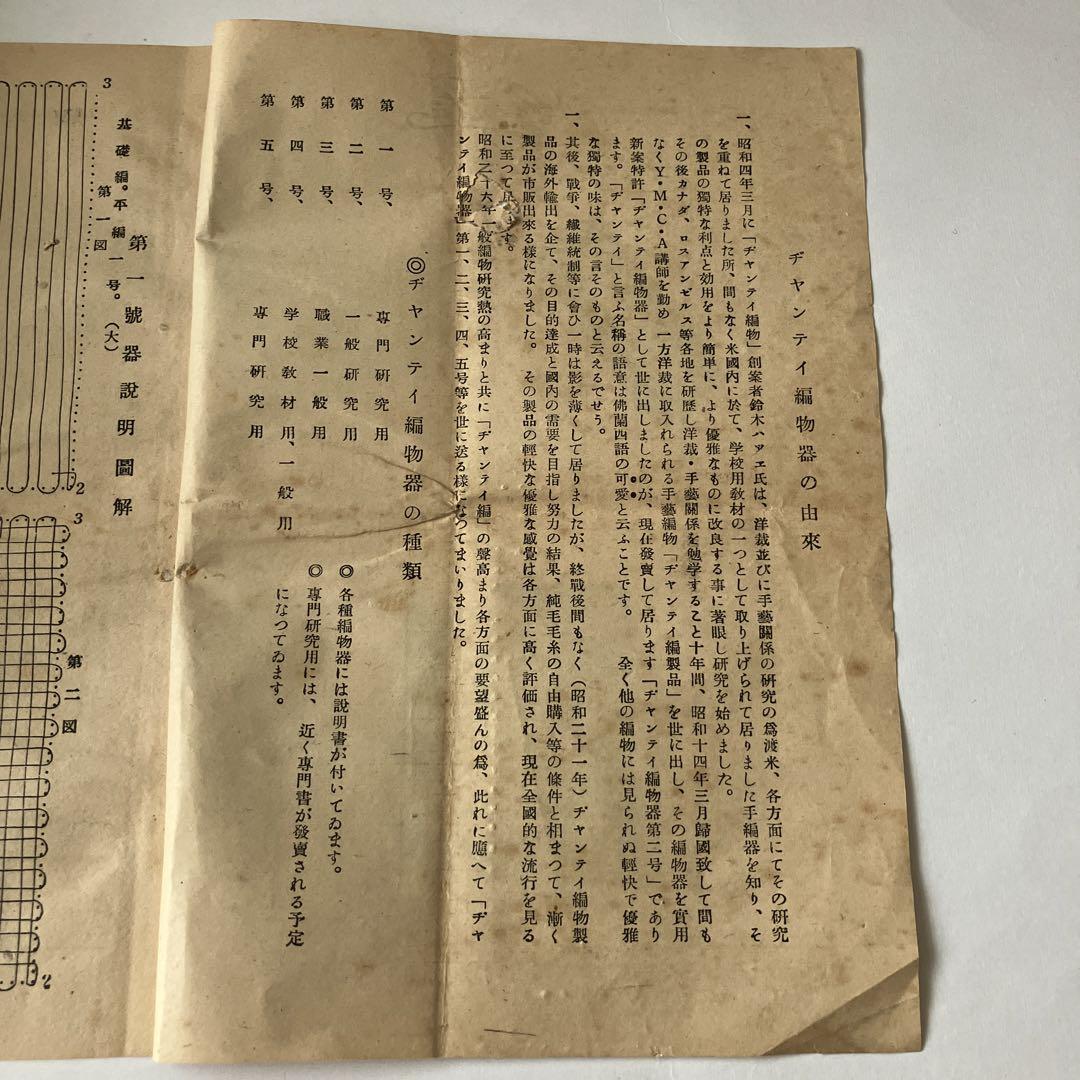 ヂャンテイ編物器の由來
一、昭和四年三月に「ヂャンテイ編物」創案者鈴木ハツエ氏は、洋裁並びに手藝關係の研究の爲渡米、各方面にてその研究
を重ねて居りました所、間もなく米國内に於て、学校用敎材の一つとして取り上げられて居りました手編器を知り、そ
の製品の獨特な利点と効用をより簡単に、より優雅なものに改良する事に著眼し研究を始めました。
その後カナダ、ロスアンゼルス等各地を研歴し洋裁・手藝關係を勉学すること十年間、昭和十四年三月歸國致して間も
なくY・M・C・A講師を勤め 一方洋裁に取入れられる手藝編物「ヂャンテイ編製品」を世に出し、その編物器を實用
新案特許「ヂャンテイ編物器」として世に出しましたのが、現在發賣して居ります「ヂャンテイ編物器第二号」であり
ます。「ヂャンテイ」と言ふ名稱の語意は佛蘭西語の可愛と云ふことです。 全く他の編物には見られぬ輕快で優雅
な獨特の味は、その言そのものと云えるでせう。
一、其後、戰爭、繊維統制等に會ひ一時は影を薄くして居りましたが、終戰後間もなく（昭和二十一年）ヂャンテイ編物製
品の海外輸出を企て、その目的達成と國内の需要を目指し努力の結果、純毛毛糸の自由購入等の條件と相まつて、漸く
製品が市販出來る様になりました。 その製品の輕快な優雅な感覺は各方面に高く評価され、現在全國的な流行を見る
に至つて居ります。
昭和二十六年一般編物研究熱の高まりと共に「ヂャンテイ編」の聲高まり各方面の要望盛んの爲、此れに應へて「ヂャ
ンテイ編物器」第一、二、三、四、五号等を世に送る様になつてまいりました。
◎ヂャンテイ編物器の種類
第一号、 専門研究用
第二号、 一般研究用
第三号、 職業一般用
第四号、 学校敎材用、一般用
第五号、 専門研究用
◎各種編物器には説明書が付いてゐます。
◎専門研究用には、近く専門書が發賣される予定
になつてゐます。
第一號器説明圖解
基礎編。平編一号。（大）
第一図
3
2
3
第二図
2